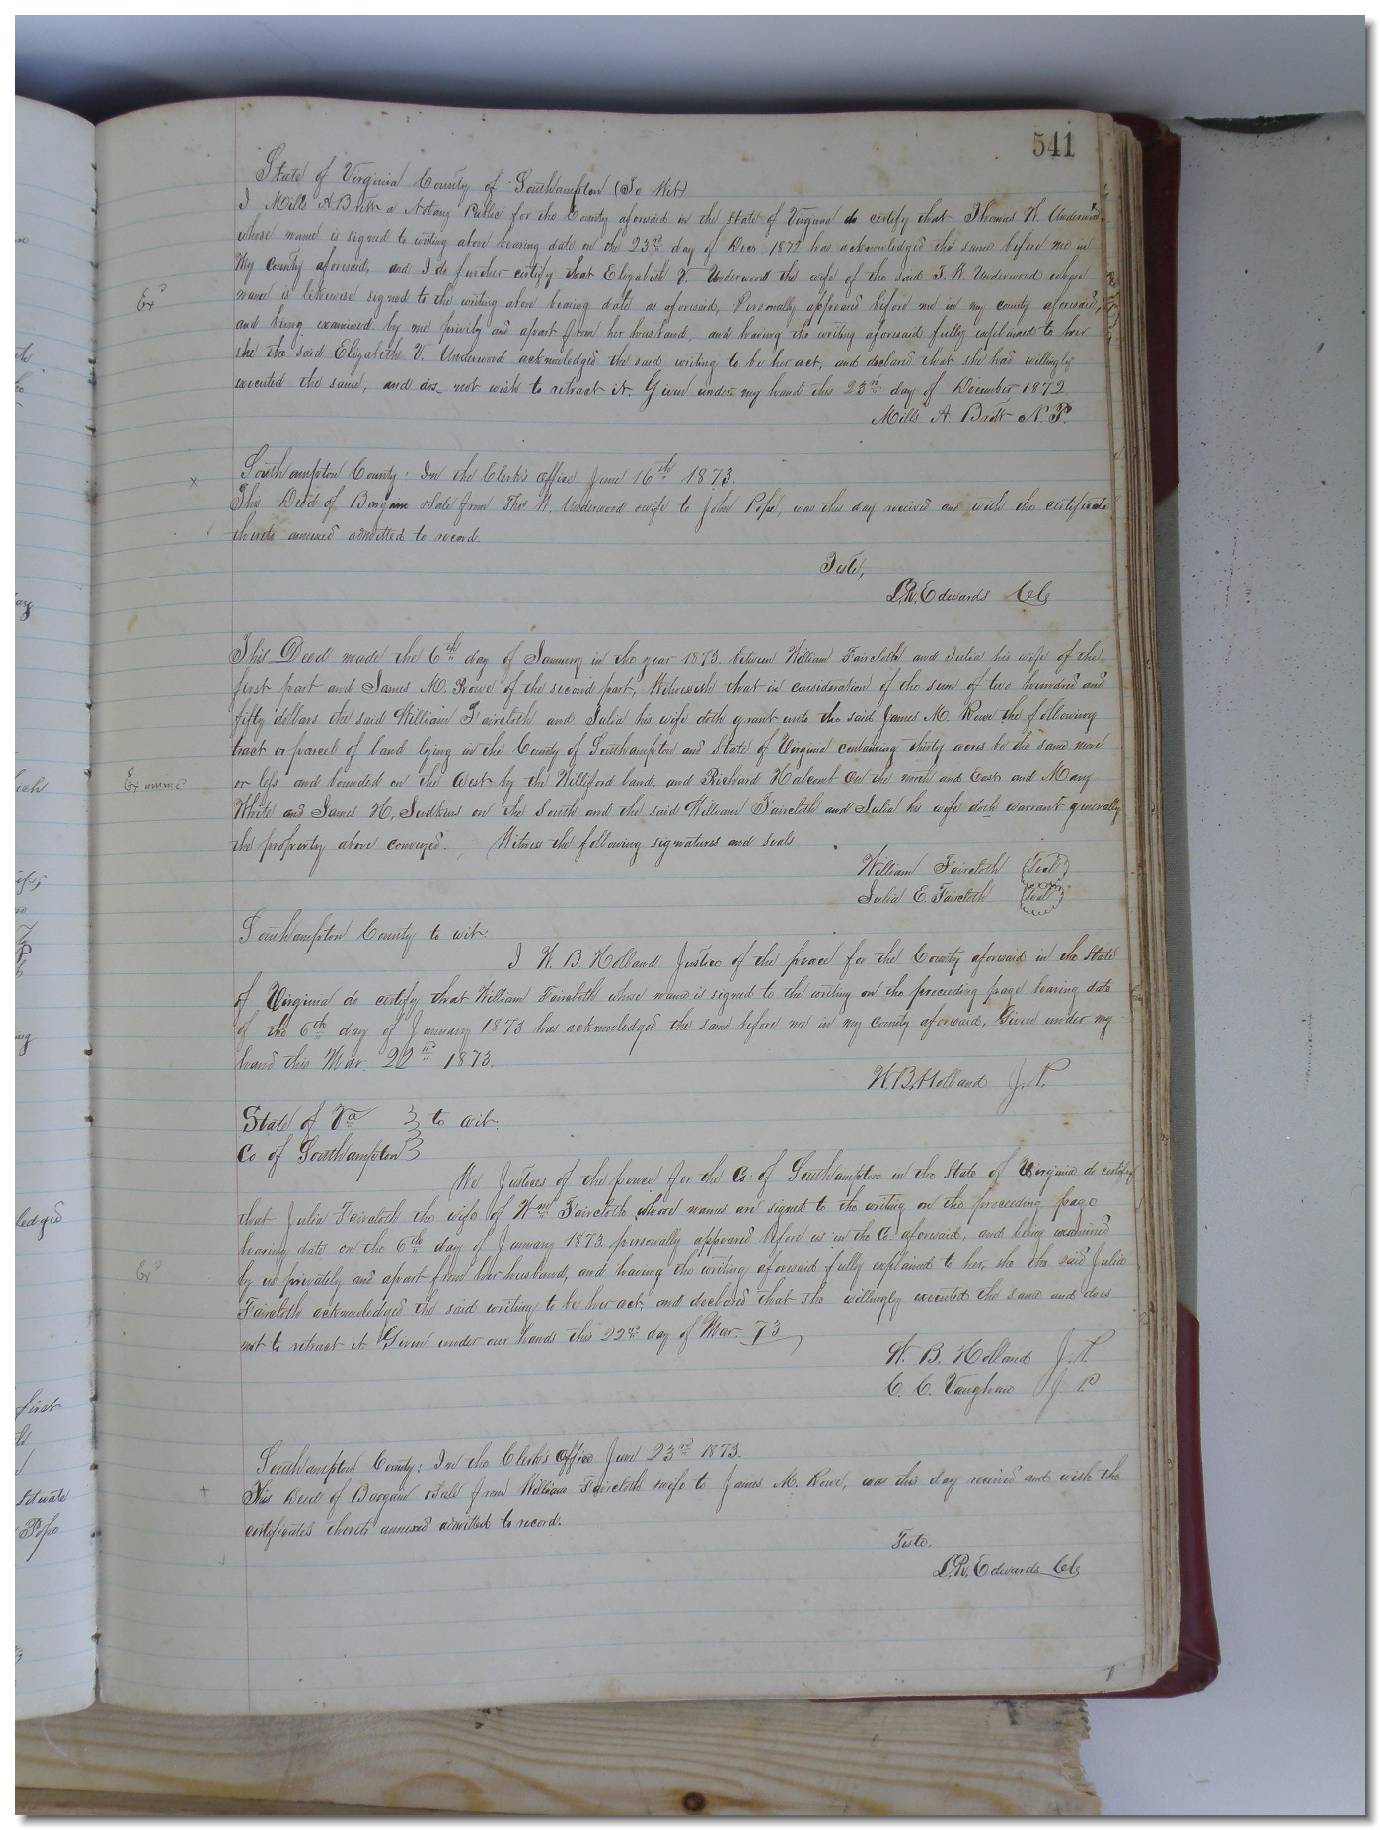 541
State of Virginia County of Southampton (To Wit)
I Mills A Britt a Notary Public for the County aforesaid in the state of Virginia do certify that Thomas W. Underwood
whose name is signed to writing above bearing date on the 23rd day of Decr 1872 has acknowledged the same before me in
My County aforesaid, and I do further certify that Elizabeth V. Underwood the wife of the said T. W. Underwood whose
Exd
name is likewise signed to the writing above bearing date as aforesaid, Personally appeared before me in my county aforesaid,
and being examined by me privily and apart from her husband, and having the writing aforesaid fully explained to her
she the said Elizabeth V. Underwood acknowledged the said writing to be her act, and declared that she had willingly
executed the same, and does not wish to retract it. Given under my hand this 23rd day of December 1872
Mills A Britt N. P.
Southampton County: In the Clerk's Office June 16th 1873.
x
This Deed of Bargain & Sale from Thos W. Underwood & wife to John Pope, was this day received and with the certificate
thereto annexed admitted to record.
Teste,
L. R. Edwards CC
This Deed made the 6th day of January in the year 1873 between William Faircloth and Julia his wife of the
first part and James M. Rowe of the second part, Witnesseth that in consideration of the sum of two hundred and
fifty dollars the said William Faircloth and Julia his wife doth grant unto the said James M. Rowe the following
tract or parcel of land lying in the County of Southampton and State of Virginia containing thirty acres be the same more
or less and bounded on the West by the Williford land, and Richard Halcomb on the north and East and Mary
White and James H. Judkins on the South and the said William Faircloth and Julia his wife doth warrant generally
the property above conveyed. Witness the following signatures and seals.
William Faircloth (Seal)
Julia E. Faircloth (Seal)
Southampton County to wit:
I W. B. Holland Justice of the peace for the County aforesaid in the State
of Virginia do certify that William Faircloth whose name is signed to the writing on the preceeding page bearing date
of the 6th day of January 1873 has acknowledged the same before me in my county aforesaid, Given under my
hand this Mar. 22nd 1873.
W. B. Holland J. P.
State of Va } to wit:
Co of Southampton }
We Justices of the peace for the Co. of Southampton in the State of Virginia do certify
that Julia Faircloth the wife of Wm Faircloth whose names are signed to the writing on the preceeding page
bearing date on the 6th day of January 1873 personally appeared before us in the Co. aforesaid, and being examined
Exd
by us privately and apart from her husband, and having the writing aforesaid fully explained to her, she the said Julia
Faircloth acknowledged the said writing to be her act, and declared that she willingly executed the same and does
not to retract it Given under our hands this 22nd day of Mar. 73
W. B. Holland J. P.
C. C. Vaughan J P
Southampton County: In the Clerk's Office June 23rd 1873.
+
This Deed of Bargain & Sale from William Faircloth & wife to James M. Rowe, was this day received and with the
certificates thereto annexed admitted to record.
Teste.
L. R. Edwards CC